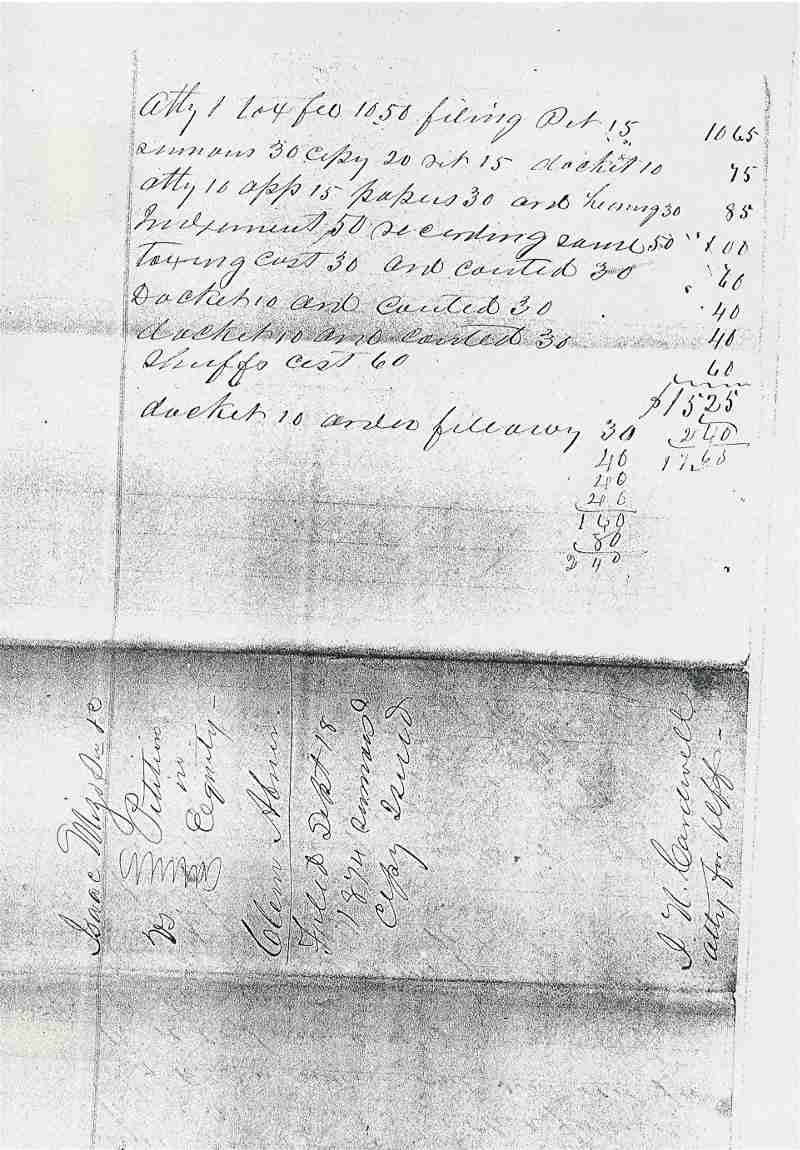 Atty 1 tax fee 10 50 filing Pet 15 10 65
summons 30 copy 20 ret 15 docket 10 75
atty 10 app 15 papers 30 and hearing 30 85
Judgement 50 recording same 50 1 00
Taxing cost 30 and 30 60
Docket 10 and 30 40
docket 10 and 30 40
Shuffs cost 60 60
$15 25
docket 10 order fileaway 30 2 40
40 17 60
40
40
1 60
80
2 40
Isaac Mize
vs Petition
in
Equity
Clem Abner
Filed Sept 18
1874 summons
copy Issued
J. N. Cardwell
atty for plff